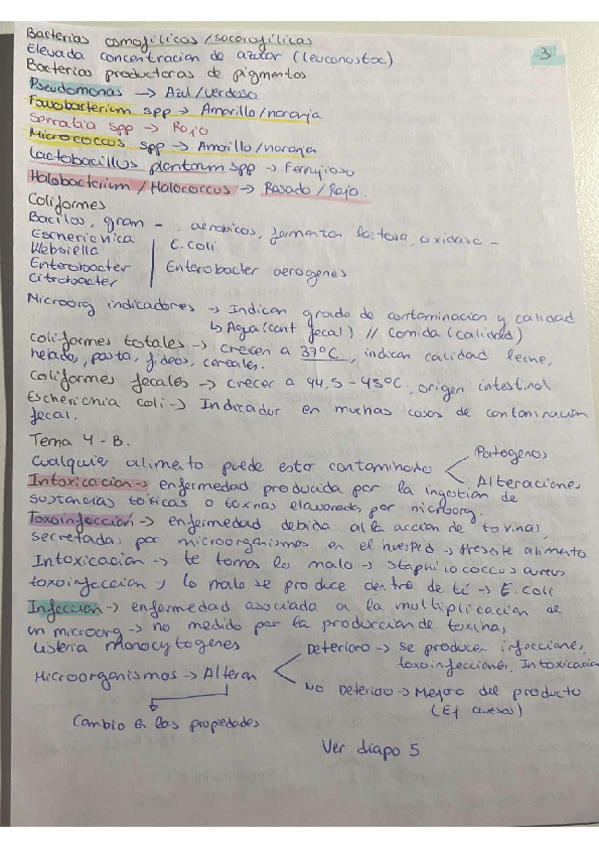 Bacterias osmofílicas / sacarofílicas
3
Elevada concentracion de azúcar (leuconostoc)
Bacterias productoras de pigmentos
Pseudomonas -> Azul/verdoso
Favobacterium spp -> Amarillo/naranja
Serratia spp -> Rojo
Micrococcus spp -> Amarillo/naranja
Lactobacillus plantarum spp -> Ferrujioso
Halobacterium / Halococcus -> Rosado / Rojo.
Coliformes
Bacilos, gram - , aerobicos, fermentan lactosa, oxidasa -
Escherichica | E. coli
Klebsiella
Enterobacter | Enterobacter aerogenes
Citrobacter
Microorg indicadores -> Indican grado de contaminacion y calidad
↳ Agua (cont fecal) // Comida (calidad)
Coliformes totales -> crecen a 37ºC, indican calidad leche,
helado, pasta, fideos, cereales.
Coliformes fecales -> crecer a 44,5 - 45ºC, origen intestinal
Escherichia coli -> Indicador en muchas casos de contaminacion
fecal.
Tema 4 - B.
Cualquier alimento puede estar contaminado < Patogenos
Alteraciones
Intoxicacion -> enfermedad producida por la ingestion de
sustancias tóxicas o toxinas elavorada por microorg.
Toxoinfeccion -> enfermedad debida al la accion de toxinas
secretadas por microorganismos en el huesped -> presente alimento
Intoxicacion -> te tomas lo malo -> staphilococcus aureus
toxoinfeccion -> lo malo se produce dentro de ti -> E. coli
Infeccion -> enfermedad asociada a la multiplicacion de
un microorg -> no medido por la produrcion de toxinas
Listeria monocytogenes
Microorganismos -> Alteran < Deterioro -> se producen infecciones,
toxoinfecciones, Intoxicacion
No Deterioro -> Mejora del producto
(Ej quesos)
Cambio en las propedades
Ver diapo 5